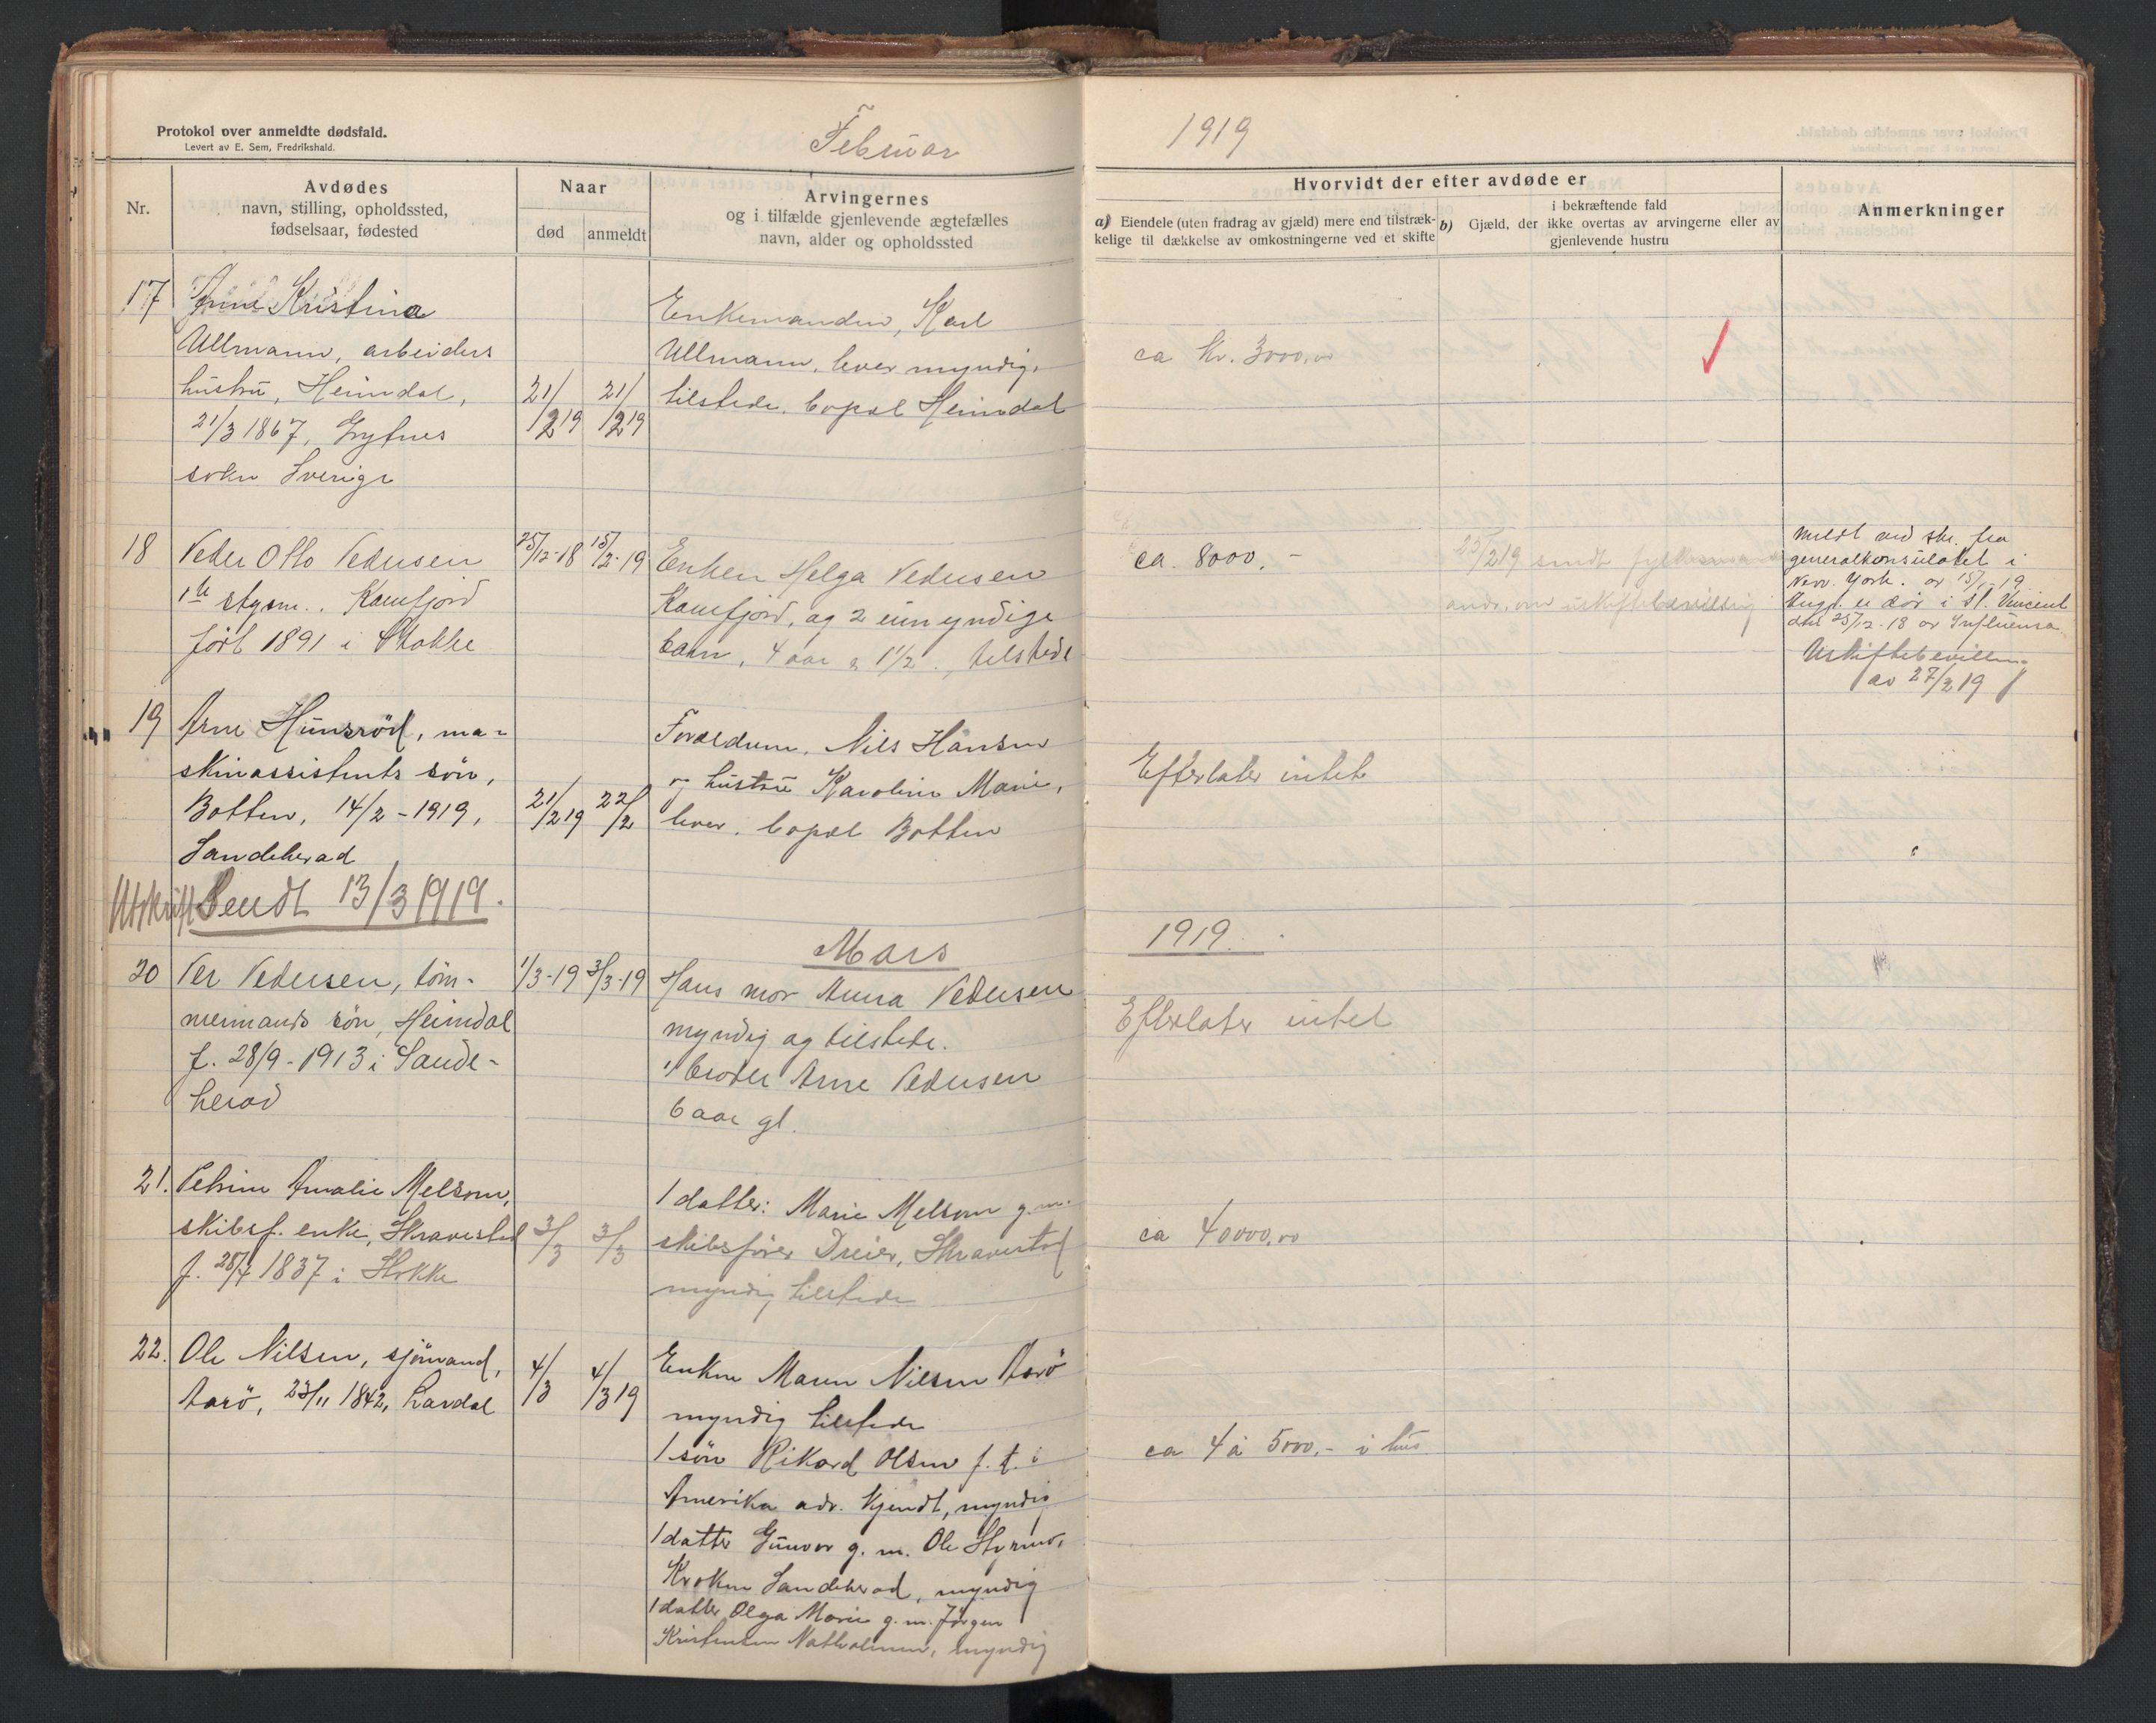 Protokol over anmeldte dødsfald.
Levert av E. Sem, Fredrikshald.
Februar
1919
Nr.
Avdødes
navn, stilling, opholdssted,
fødselsaar, fødested
Naar
død
anmeldt
Arvingernes
og i tilfælde gjenlevende ægtefælles
navn, alder og opholdssted
Hvorvidt der efter avdøde er
a) Eiendele (uten fradrag av gjæld) mere end tilstræk-
kelige til dækkelse av omkostningerne ved et skifte
b) Gjæld, der ikke overtas av arvingerne eller av
i bekræftende fald
gjenlevende hustru
Anmerkninger
17
Kristina
Ullmann, arbeiders
hustru, Heimdal,
21/3 1867, Grytnes
sokn Sverige
21/2 19
21/2 19
Enkemanden, Karl
Ullmann, lever myndig,
tilstede, bopæl Heimdal
ca kr. 3000,00
18
Peder Otto Pedersen
1ste styrm., Kamfjord
født 1891 i Stokke
25/12-18
15/2-19
Enken Helga Pedersen
Kamfjord, og 2 umyndige
barn, 4 aar & 1 1/2, tilstede
ca. 8000,-
25/2 19 sendt
andr. om uskiftebevilling
meldt ved skr. fra
generalkonsulatet i
New York. av 15/1-19
er død i St. Vincent
den 25/12-18 av Influensa.
Uskiftebevilling
av 27/2 19
19
Arne Hunsrød, ma-
skinassistents søn,
Botten, 14/2-1919,
Sandeherad
21/2 19
22/2
Forældrene, Nils Hansen
og hustru Karoline Marie,
lever. bopæl Botten
Efterlater intet
Utskrift Sendt 13/3 1919.
Mars
1919.
20
Per Pedersen, tøm-
mermands søn, Heimdal
f. 28/9-1913 i Sande-
herad
1/3-19
3/3-19
Hans mor Anna Pedersen
myndig og tilstede.
1 broder Arne Pedersen
6 aar gl.
Efterlater intet
21.
Petrine Amalie Melsom,
skibsf. enke, Skravestad
f. 28/7 1837 i Stokke
3/3
3/3
1 datter: Marie Melsom g. m.
skibsfører Dreier, Skravestad
myndig tilstede
ca 40000,00
22.
Ole Nilsen, sjømand,
Aarø, 23/11 1842, Lardal
4/3
4/3 19
Enken Maren Nilsen Aarø
myndig tilstede
1 søn Rikard Olsen f. t. i
Amerika adr. kjendt, myndig
1 datter Gunvor g. m. Ole
Kroken Sandeherad, myndig
1 datter Olga Marie g. m. Jørgen
Kristensen Natholmen, myndig
ca 4 à 5000,- i hus